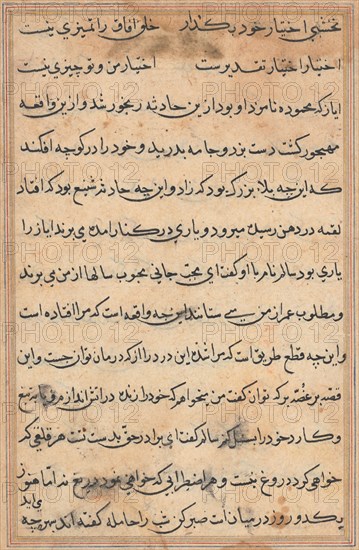 نخشبی اختیار خود بگذار خلق آفاق را تمیزی نیست
اختیار اختیار تقدیرست اختیار من و تو چیزی نیست
ایاز که محموده نامزد او بود ازین حادثه رنجور شد و ازین واقعه
مهجور گشت دست بزد و جامه بدرید و خود را در کوچه افکند
که این چه بلا بزرگ بود که زاد و این چه حادثه شنیع بود که افتاد
لقمه در دهن رسیده میرود و یاری در کنار آمده می برند ایاز را
یاری بود سالم نام با او گفت ای محب جانی محبوب سالها از من می برند
و مطلوب عمر از من می ستانند این چه واقعه است که مرا افتاده است
و این چه قطع طریق است که مرا شد این درد را از که درمان توان جست و این
قصه پر غصه بر که توان گفت من میخواهم که خود را زنده در آتش اندازم
و کار د حق در سالم گفت ای برادر حق بدست تست هر قلقی که
خواهی کرد دروغ نیست و هر اضطرابی که خواهی نمود دریغ نه اما هنوز
یکدو روز در میان است صبر کن شب را حامله گفته اند ببین چه
می زاید